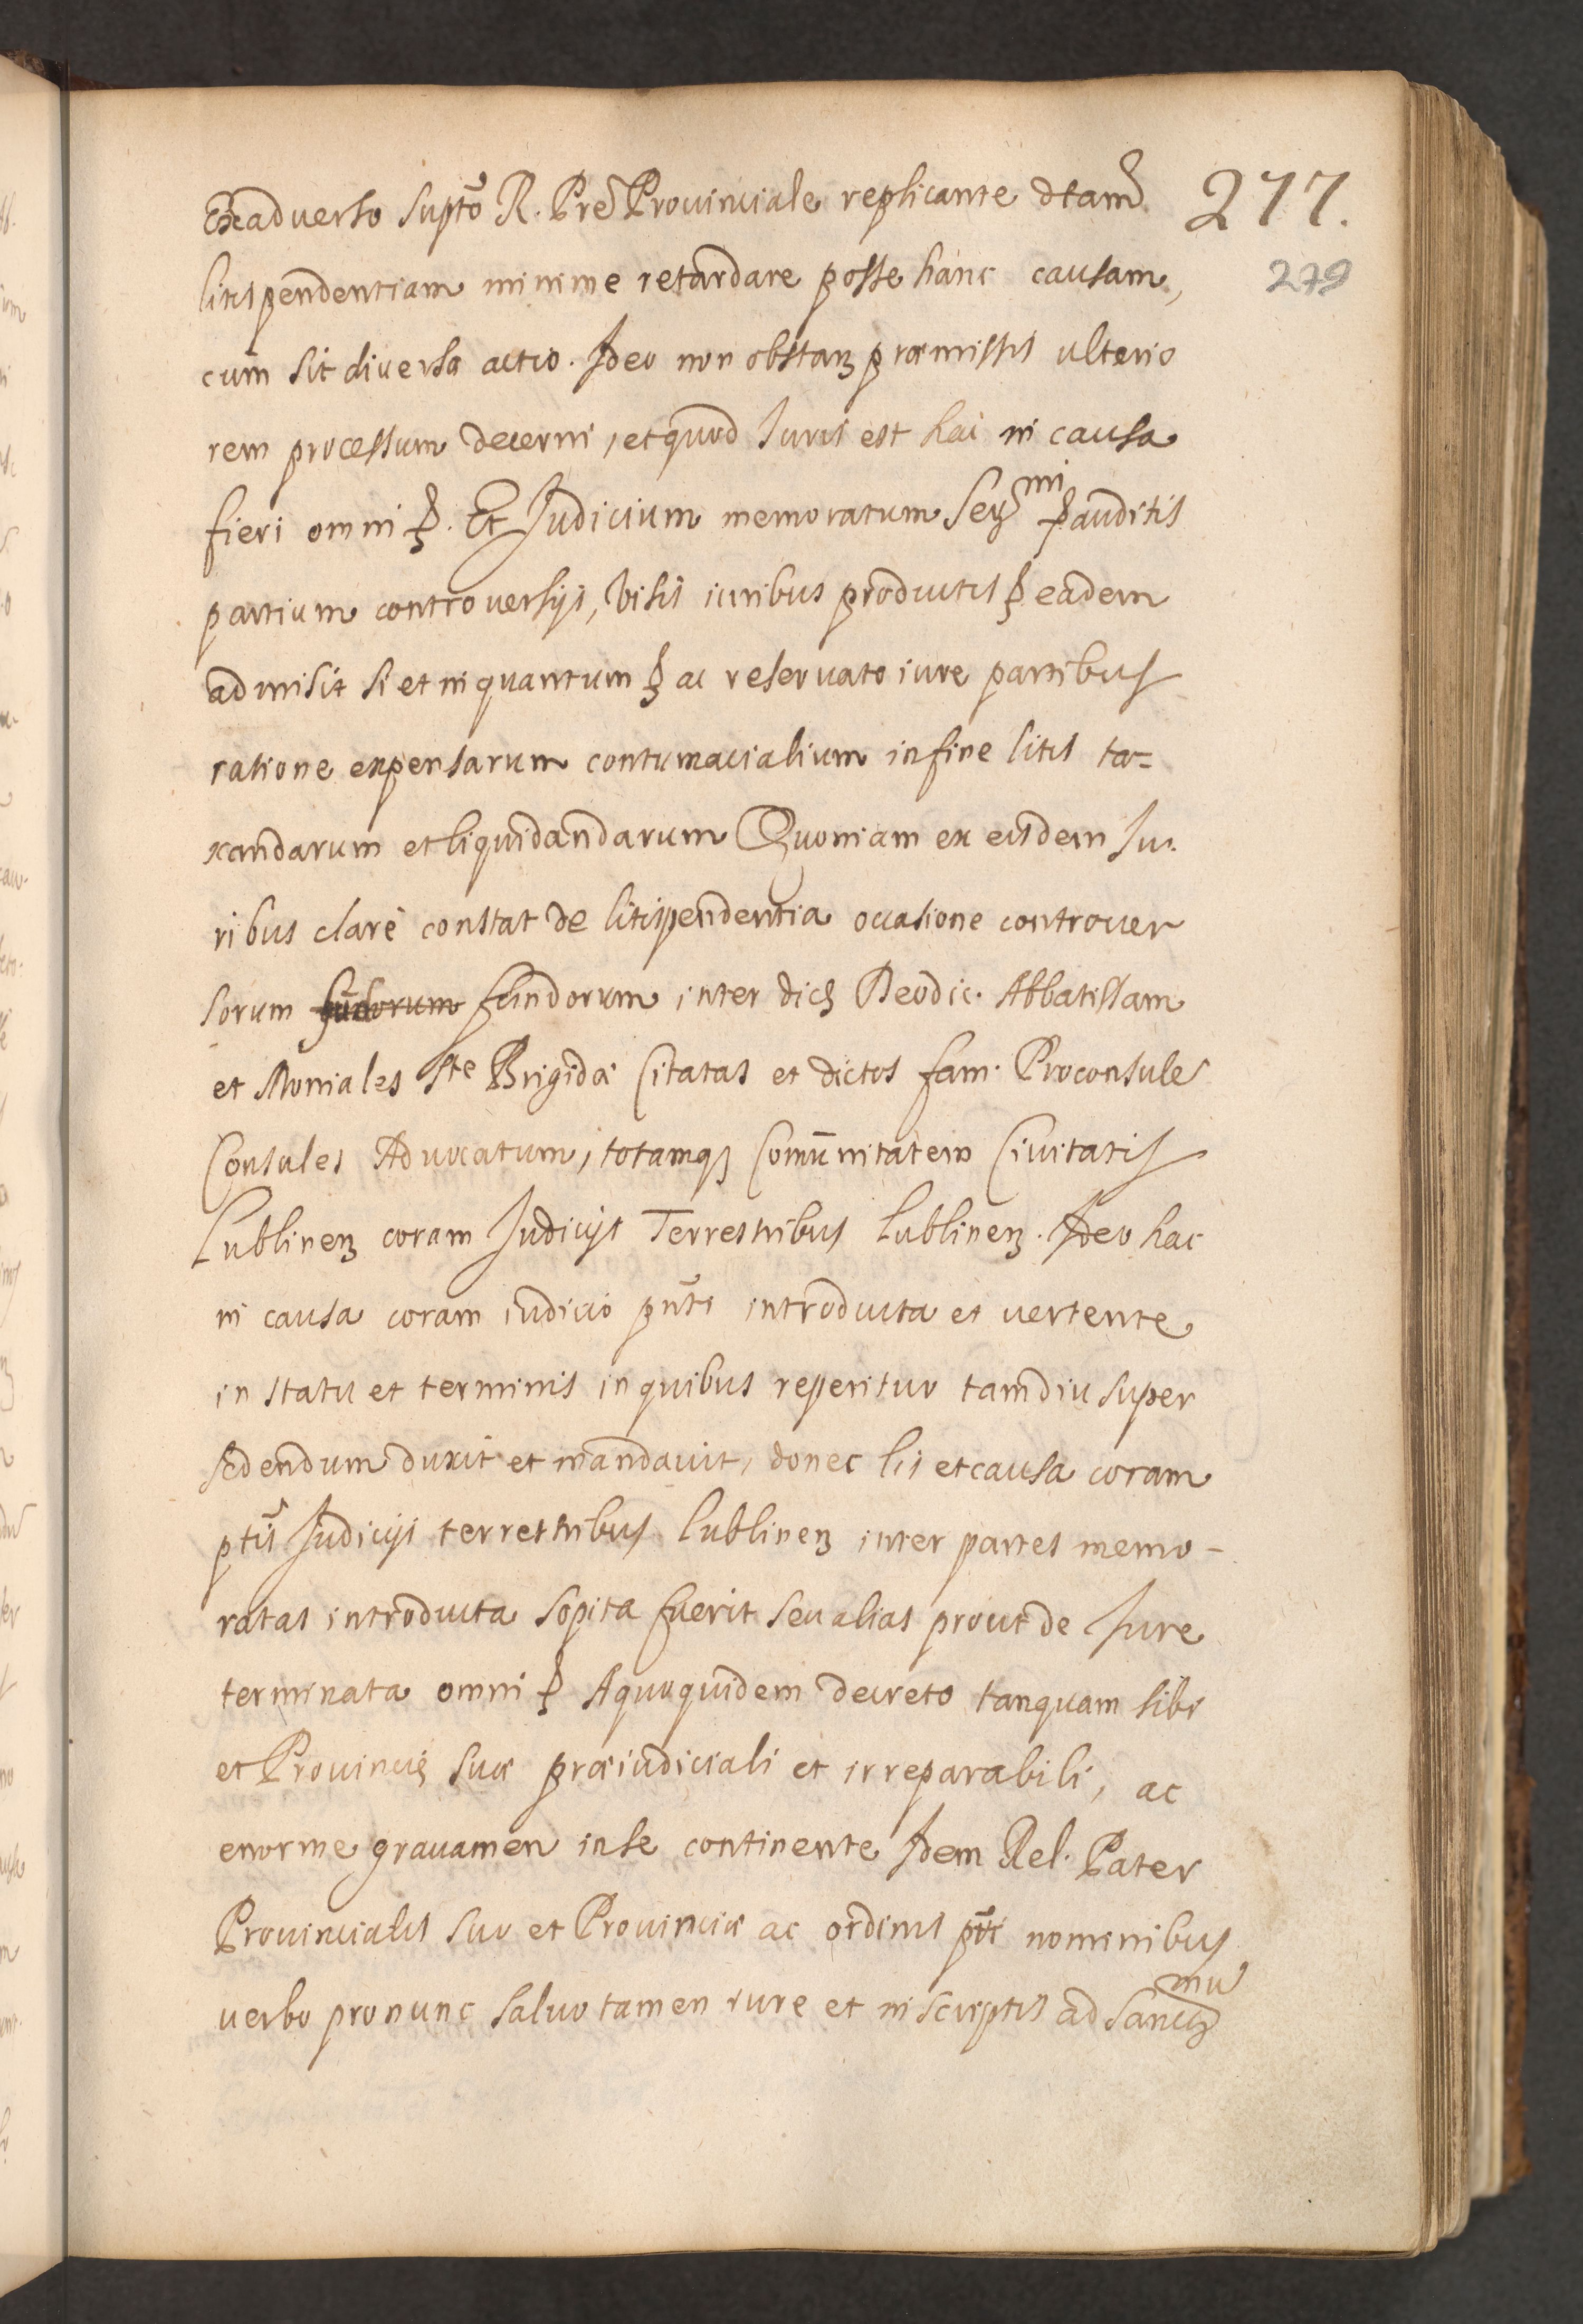 Ex adverso supto R. Pre Prouinciale replicante dtam 277.
litispendentiam minime retardare posse hanc causam, 279
cum sit diuersa actio. Ideo non obstan præmissis ulterio
rem processum decerni, et quod Juris est hac in causa
fieri omni p. Et Judicium memoratum Ser mi p auditis
partium controuersijs, visis iuribus productis p eadem
admisit si et in quantum p ac reseruato iure partibus
ratione expensarum contumacialium in fine litis ta=
xandarum et liquidandarum Quoniam ex eisdem Ju.
ribus clarè constat de litispendentia occasione controuer
sorum fundorum inter dict Deodic. Abbatissam
et Moniales Ste Brigidæ Citatas et dictos fam. Proconsule
Consules Aduocatum, totamq Comunitatem Ciuitatis
Lublinen coram Judicijs Terrestribus Lublinen. Ideo hac
in causa coram iudicio pnti introducta et uertente
in statu et terminis in quibus reperitur tamdiu super
sedendum duxit et mandauit, donec lis et causa coram
ptis Judicijs terrestribus Lublinen inter partes memo-
ratas introducta sopita fuerit seu alias prout de Jure
terminata omni p A quo quidem decreto tanquam sibi
et Prouinciæ suæ præiudiciali et irreparabili, ac
enorme grauamen in se continente Idem Rel. Pater
Prouincialis suo et Prouinciæ ac ordinis nominibus
uerbo pro nunc saluo tamen iure et in scriptis ad Sanct mu